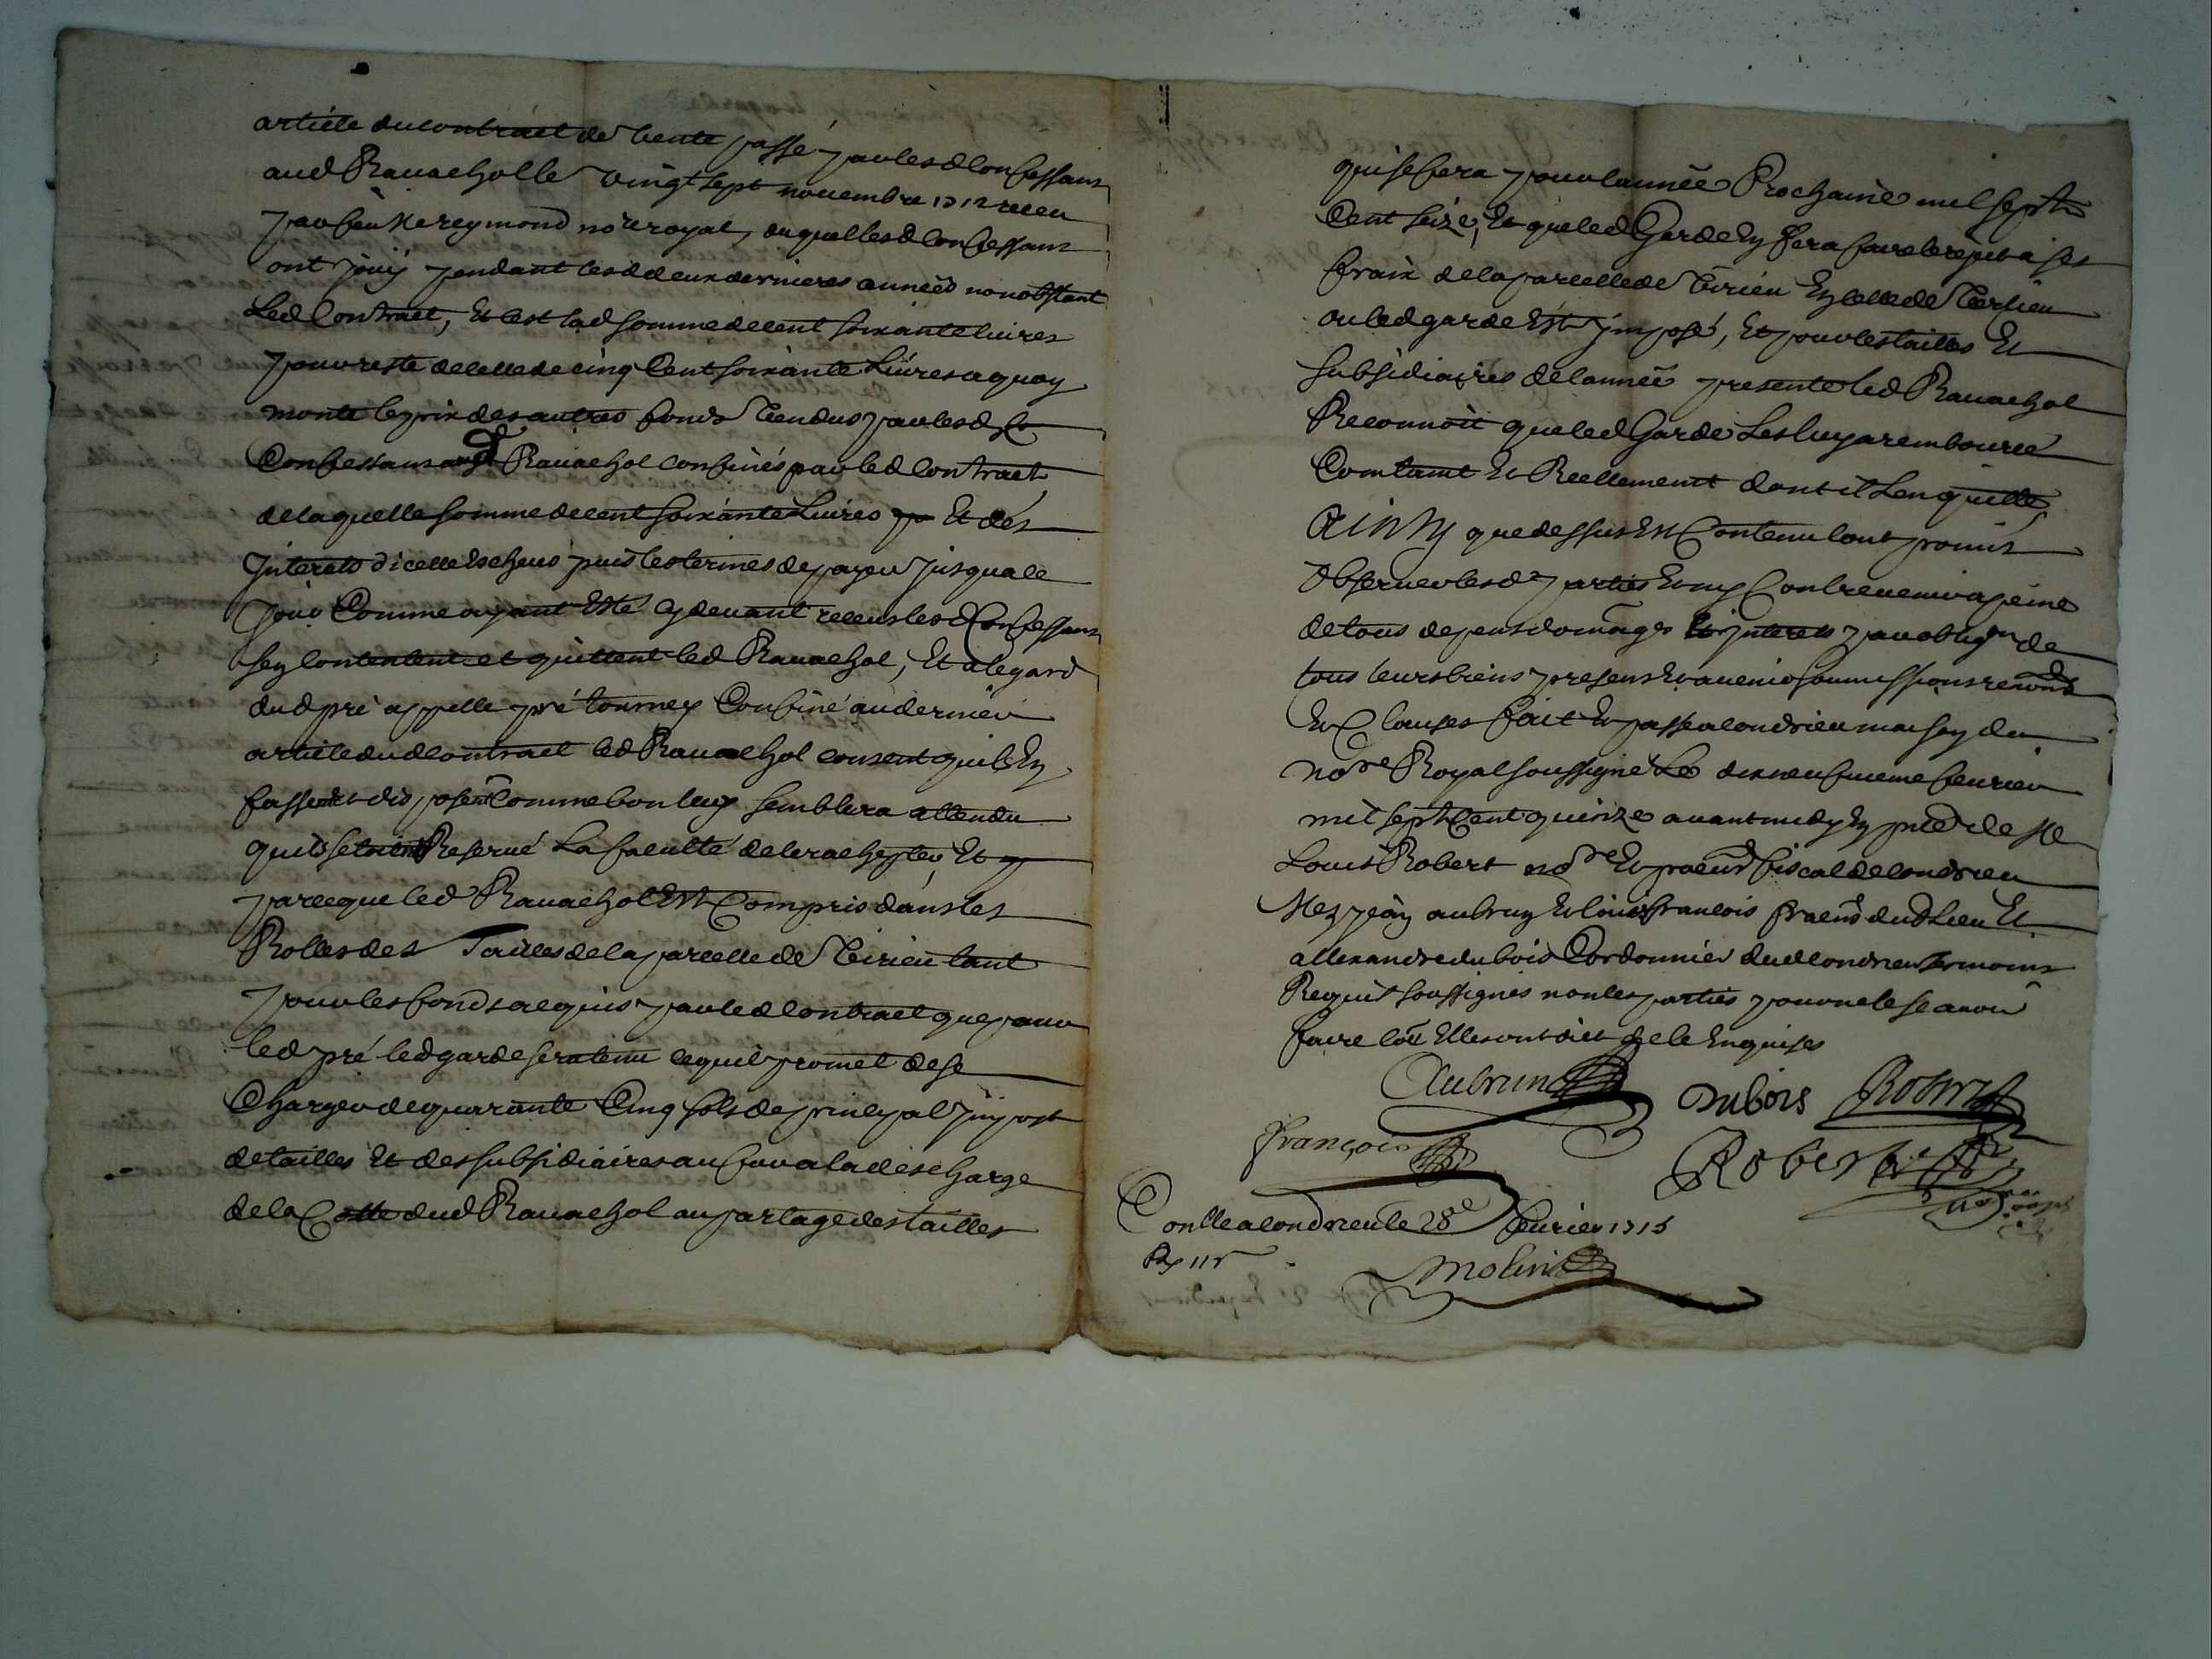 article du contract de vente passé par lesd confessans
aud Rauachol le vingt sept novembre 1712 receu
par feu Me reymond nore royal, duquel lesd confessans
ont jouy pendant lesd deux dernieres années nonobstant
Led Contract, Et c'est lad somme de cent soixante livres
pour reste de celle de cinq Cent soixante Livres a quoy
monte le prix des autres fonds vendus par lesd
Confessans aud Rauachol confinés par led Contract
de laquelle somme de cent soixante Livres Et des
Interets dicelle Escheus puis les termes de payer jusqua ce
jour Comme ayant Esté cy devant receus lesd Confessans
sen contentent et quittent led Rauachol, Et a legard
dud pré appellé pré tourney Confiné au dernier
article dud contract led Rauachol consent quils En
fassent et disposent Comme bon leur semblera attendu
quils setoient Reservé La faculté de le rachepter, Et
parceque led Rauachol Est Compris dans les
Rolles des Tailles de la parcelle de Virieu tant
pour les fonds acquis par led contract que pour
led pré led garde sera tenu ce quil promet de se
Charger de quarante Cinq sols de principal jmpost
de tailles Et des subsidiaires au fur a la descharge
de la Cotte dud Rauachol au partage des tailles
qui se fera pour lannée Prochaine mil sept
Cent seize, Et que led Garde En fera faire le rejet a ses
fraix de la parcelle de Virieu En celle de Verlieu
ou led garde Est jmposé, Et pour les tailles Et
subsidiaires de lannée presente led Rauachol
Reconnoit que led Garde Les luy a rembource
Comtant Et Reellement dont il Len quitte
Ainsy que dessus Est Contenu lont promis
Observer lesd parties Et ny Contrevenir a peine
de tous depens domages Et jnterets par obligon de
tous leurs biens presens Et avenir soumissions renons
Et Clauses fait Et passé a condrieu maison du
nore Royal soussigné Le dix neufvieme fevrier
mil sept Cent quinze avant midy En pnce de Me
Louis Robert nore Et procur fiscal de condrieu
Mes jean aubrun Et louis francois procurs dud Lieu Et
allexandre dubois Cordonnier dud condrieu temoins
Requis soussignés non les parties pour ne le scavoir
faire come Elles ont dict de ce Enquises
Aubrun Dubois Robert
françois Robert
Conlle a condrieu le 28e feurier 1715
Rx 11s
Molin